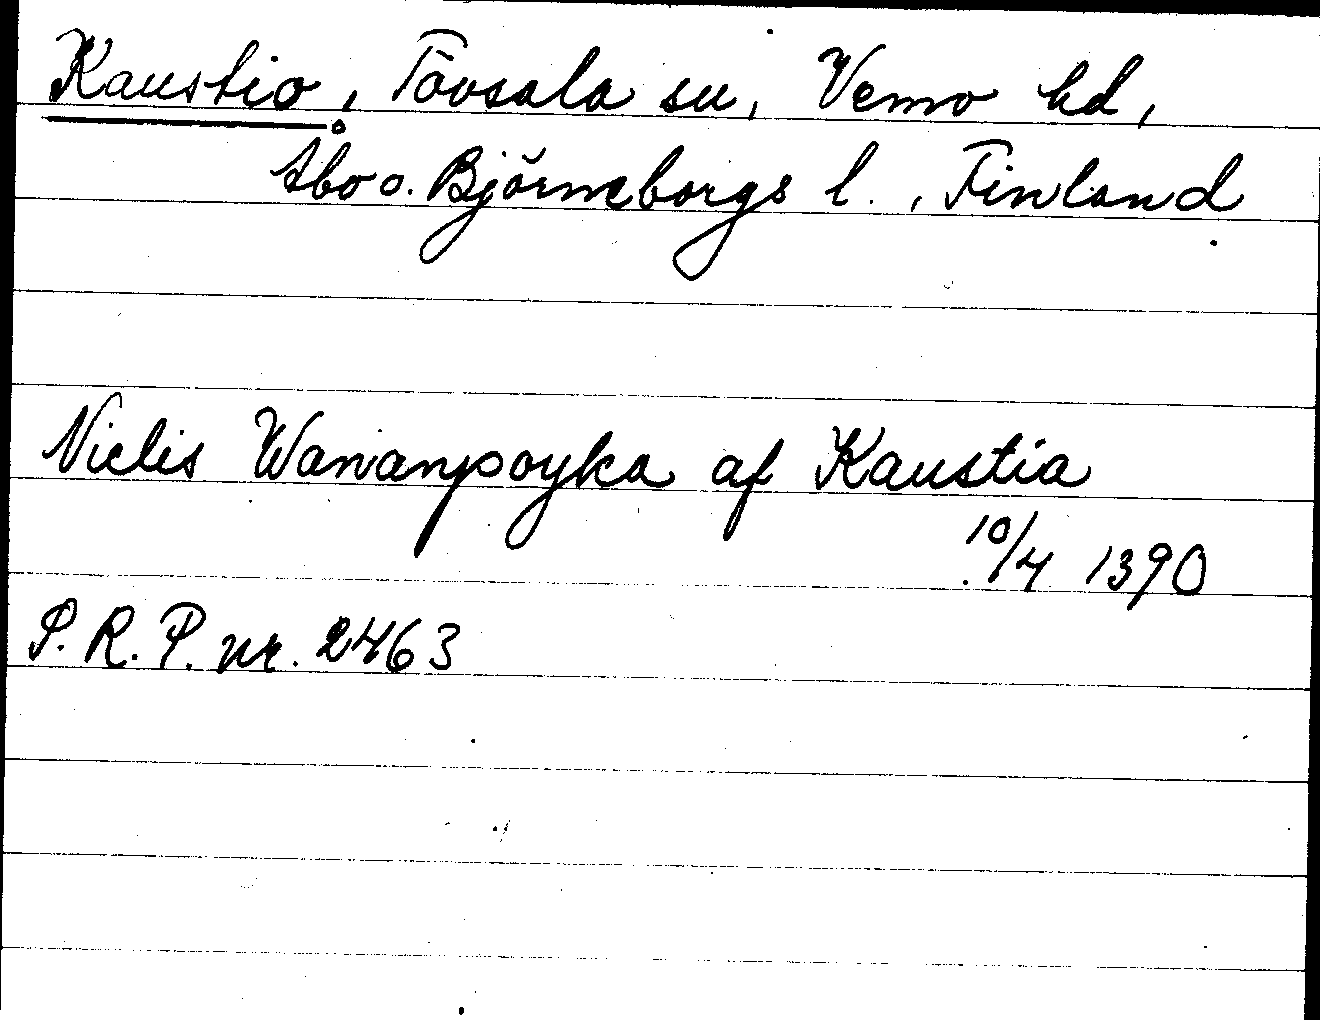 Kaustio, Tövsala sn, Vemo hd,
Åbo o. Björneborgs l., Finland
Niclis Wananpoyka af Kaustia
10/4 1390
S.R.P. nr. 2463